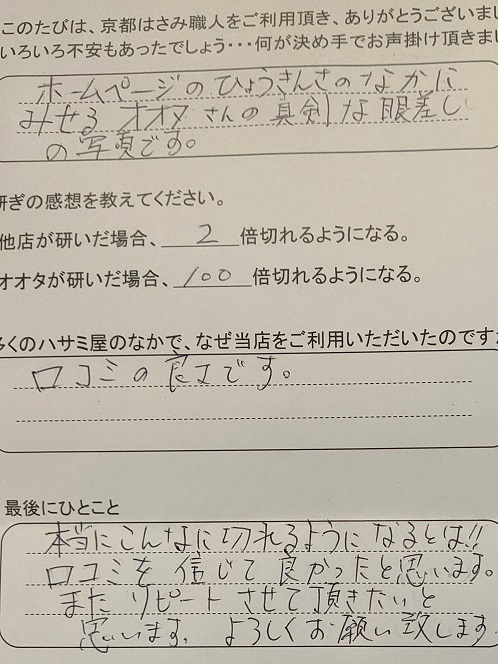 このたびは、京都はさみ職人をご利用頂き、ありがとうございまし
いろいろ不安もあったでしょう・・・何が決め手でお声掛け頂きま
ホームページのひょうきんさのなかに
みせる オオタ さんの 真剣な眼差し
の写真です。
研ぎの感想を教えてください。
他店が研いだ場合、2倍切れるようになる。
オオタが研いだ場合、100倍切れるようになる。
多くのハサミ屋のなかで、なぜ当店をご利用いただいたのですか
口コミの良さです。
最後にひとこと
本当にこんなに切れるように なるとは!!
口コミを 信じて 良かったと思います。
また リピート させて頂きたいと
思います。 よろしくお願い致します